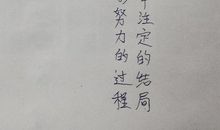 中注定的结局
努力的过程